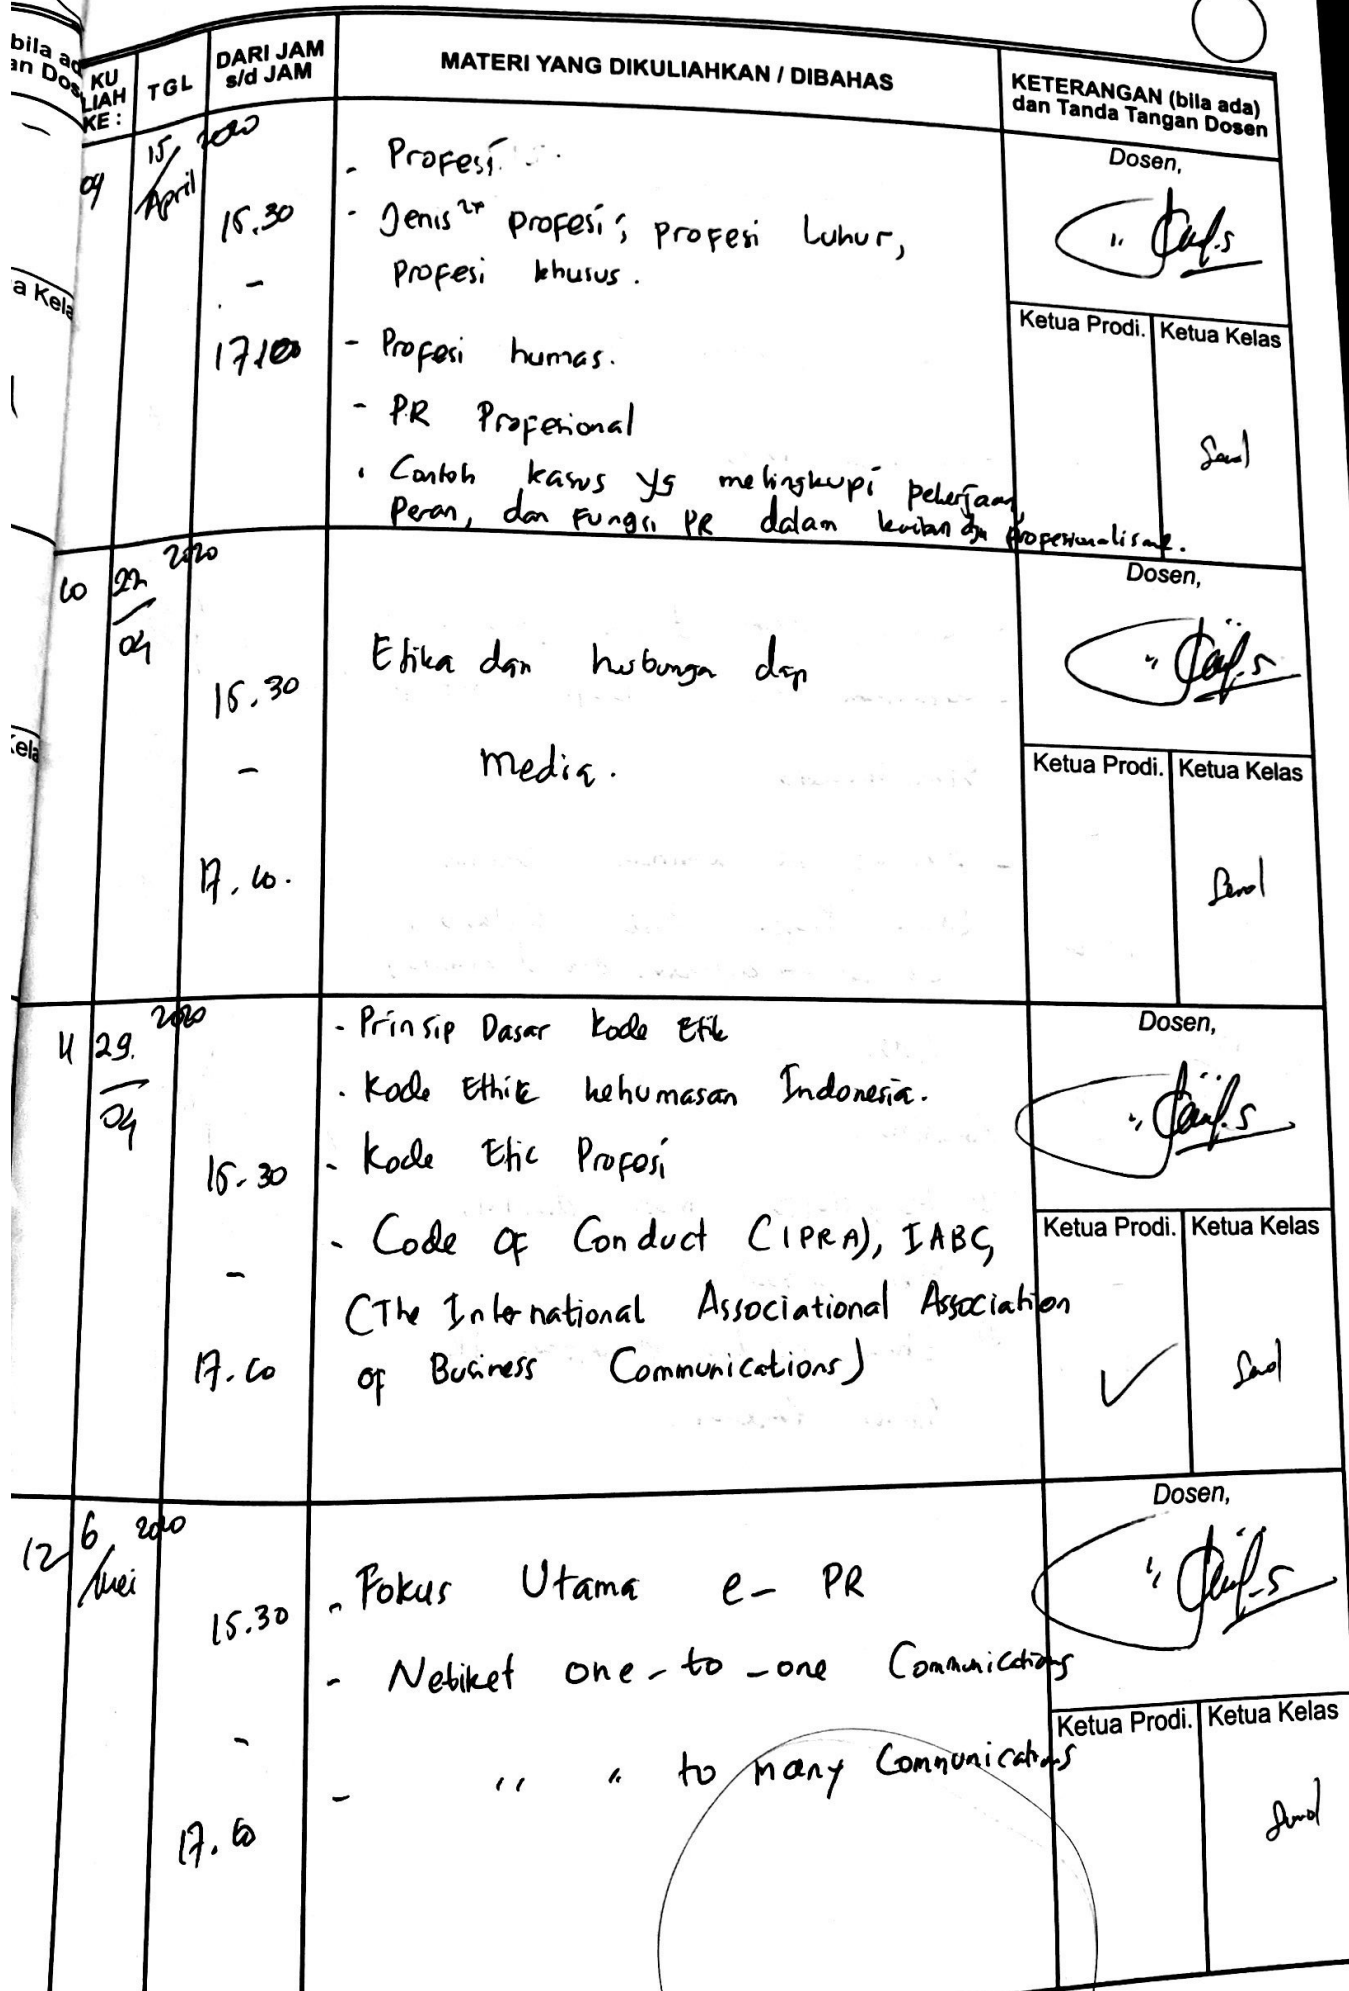 bila ad
an Dos
a Kela
Kela
KU
LIAH
KE :
TGL
DARI JAM
s/d JAM
MATERI YANG DIKULIAHKAN / DIBAHAS
KETERANGAN (bila ada)
dan Tanda Tangan Dosen
09
15/April 2020
15.30
-
17.10
- Profesi
- Jenis²⁺ profesi; profesi Luhur,
profesi khusus.
- Profesi humas.
- PR Profesional
. Contoh kasus yg melingkupi pekerjaan,
Peran, dan Fungsi PR dalam kaitan dgn profesionalisme.
Dosen,
Ketua Prodi.
Ketua Kelas
10
22/04 2020
15.30
-
17.10.
Etika dan hubunga dgn
Media.
Dosen,
Ketua Prodi.
Ketua Kelas
11
29./04 2020
15.30
-
17.10
- Prinsip Dasar kode Etik
. Kode Ethik kehumasan Indonesia.
- Kode Etic Profesi
- Code of Conduct (IPRA), IABC,
(The International Associational Association
of Business Communications)
Dosen,
Ketua Prodi.
Ketua Kelas
12
6/Mei 2020
15.30
-
17.10
- Fokus Utama e- PR
- Netiket one-to-one Communications
- " " to many Communications
Dosen,
Ketua Prodi.
Ketua Kelas